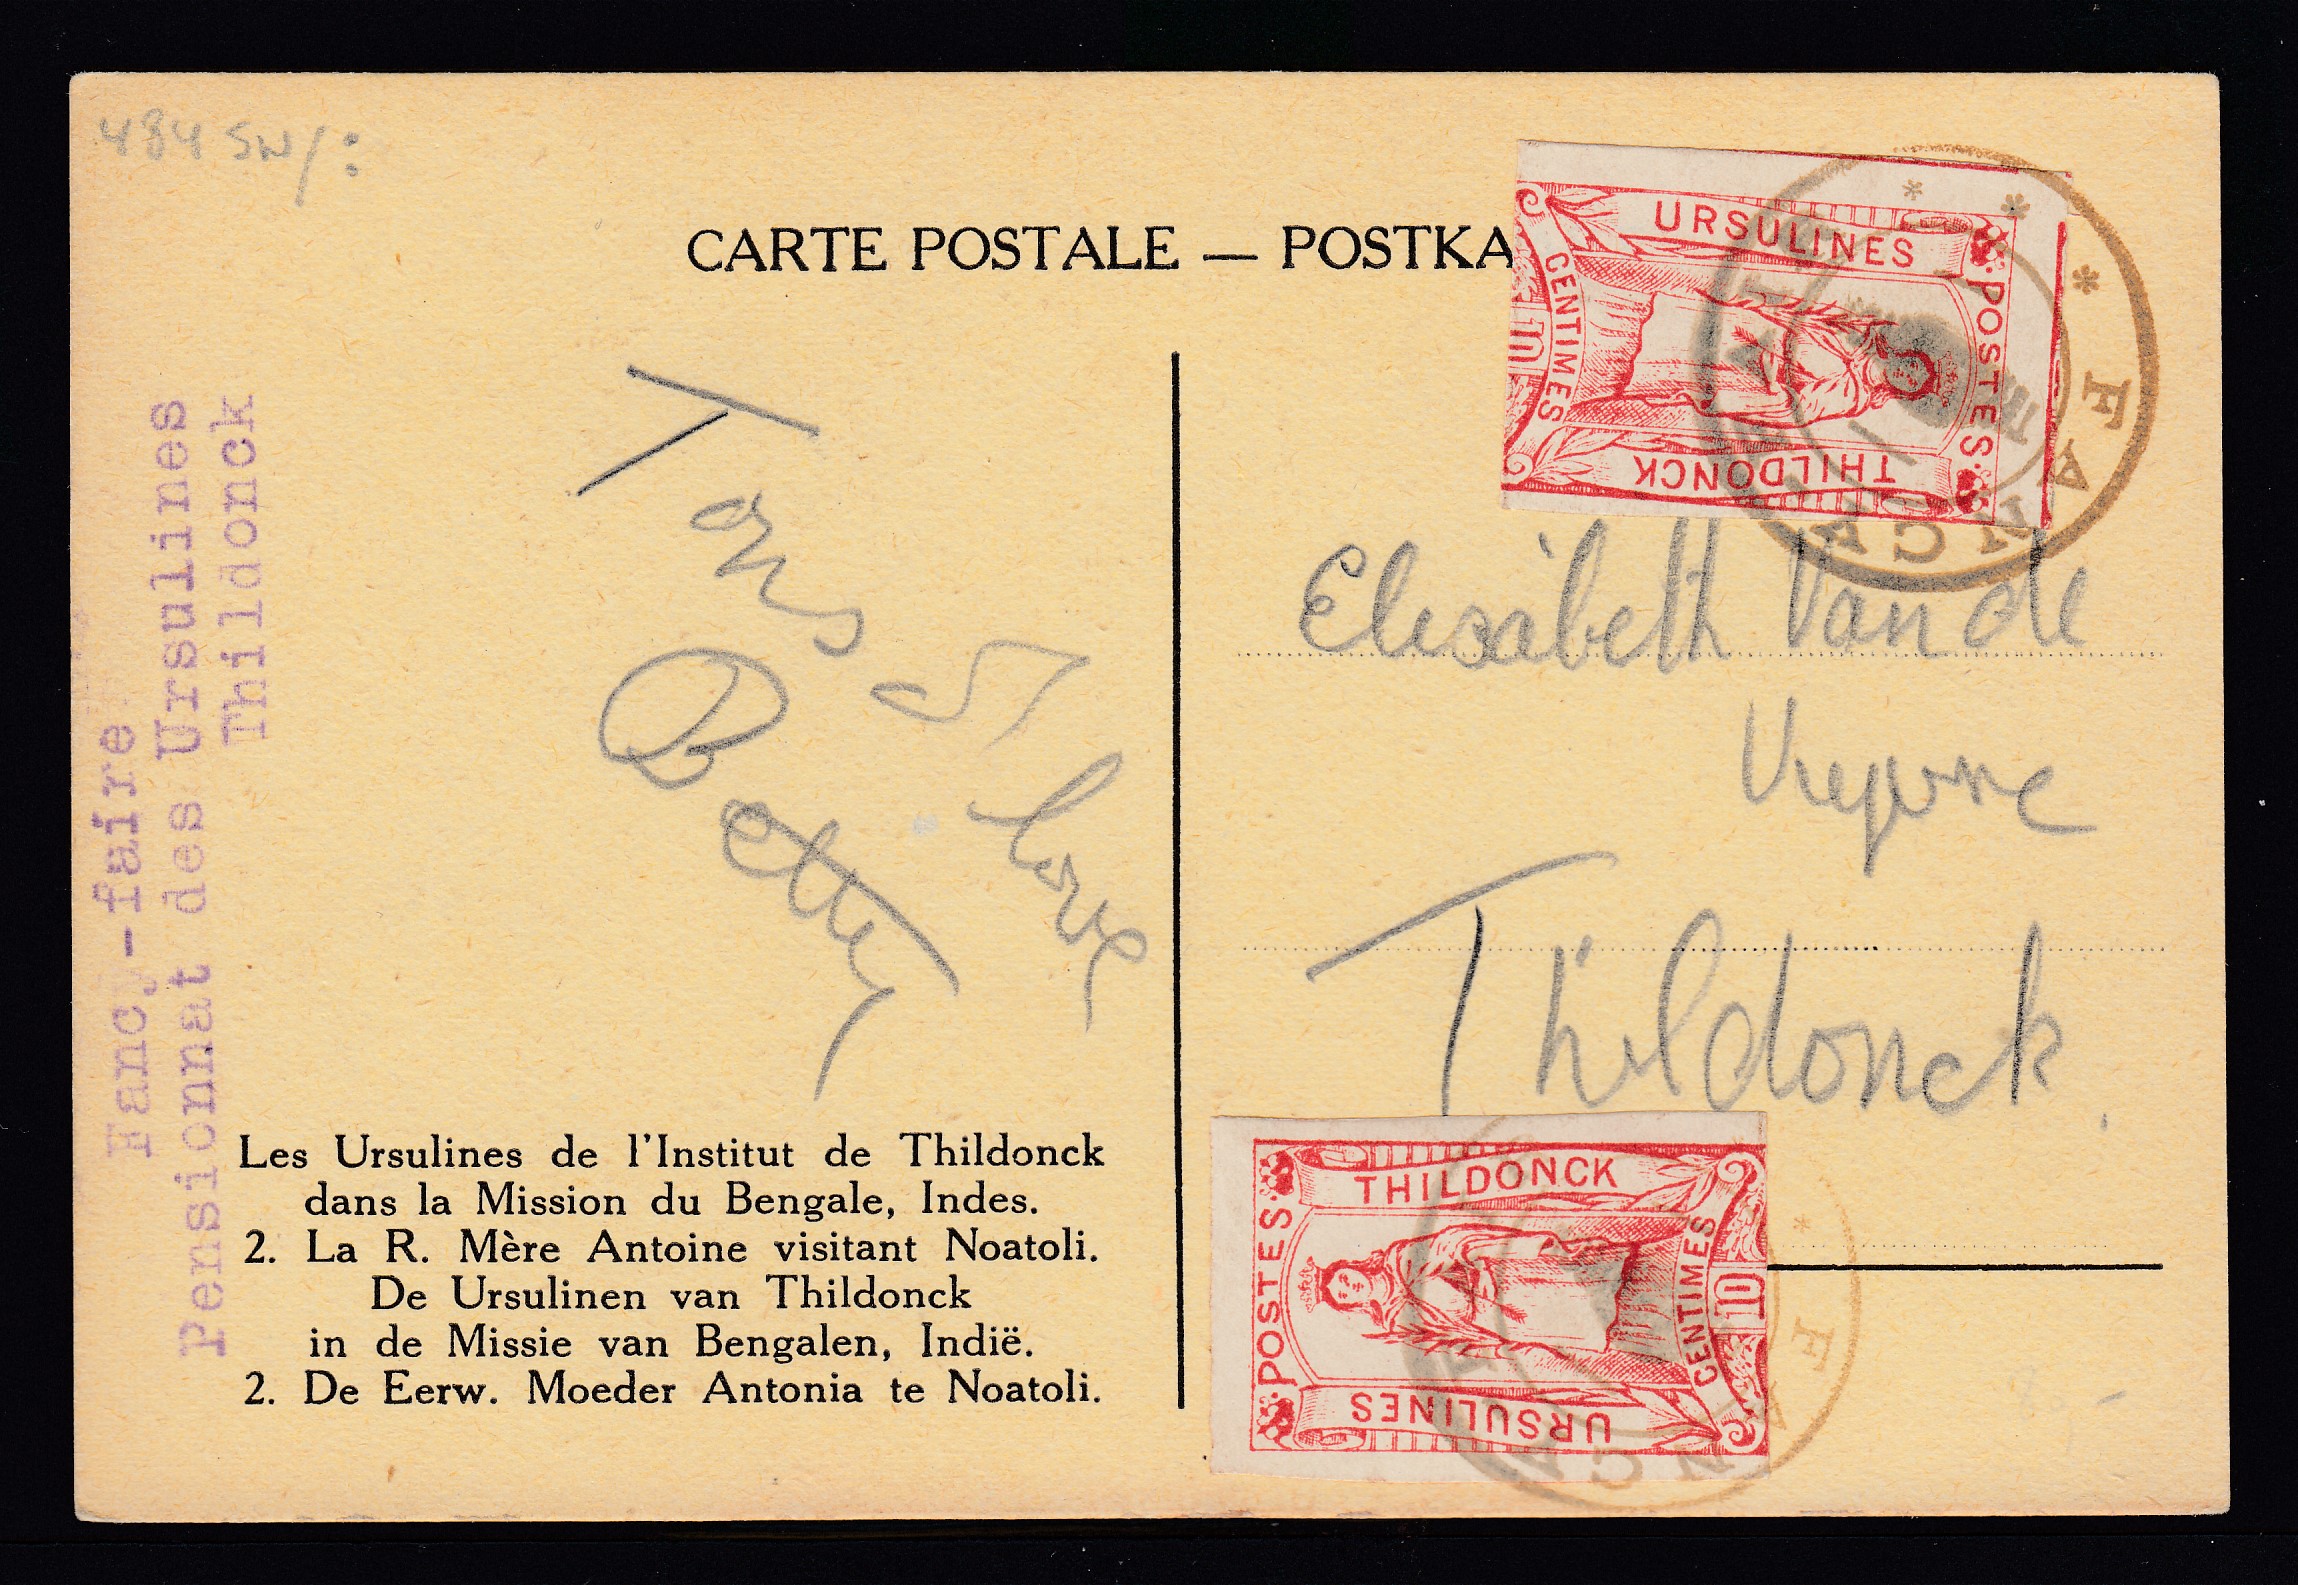 484 SN/:
CARTE POSTALE — POSTKA
URSULINES
POSTES
THILDONCK
CENTIMES
10
FANCY
Fancy-faire
Pensionnat des Ursulines
Thildonck
Elisabeth Van de
Thildonck.
Betty
Les Ursulines de l'Institut de Thildonck
dans la Mission du Bengale, Indes.
2. La R. Mère Antoine visitant Noatoli.
De Ursulinen van Thildonck
in de Missie van Bengalen, Indië.
2. De Eerw. Moeder Antonia te Noatoli.
THILDONCK
POSTES
URSULINES
CENTIMES
10